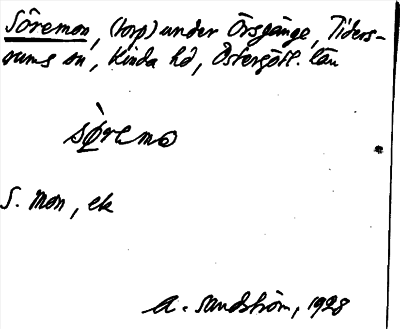 Söremon, (torp) under Örsgänge, Tiders-
rums sn, Kinda hd, Östergötl. län
sø̀remo
S. mon, ek
A. Sandström, 1928